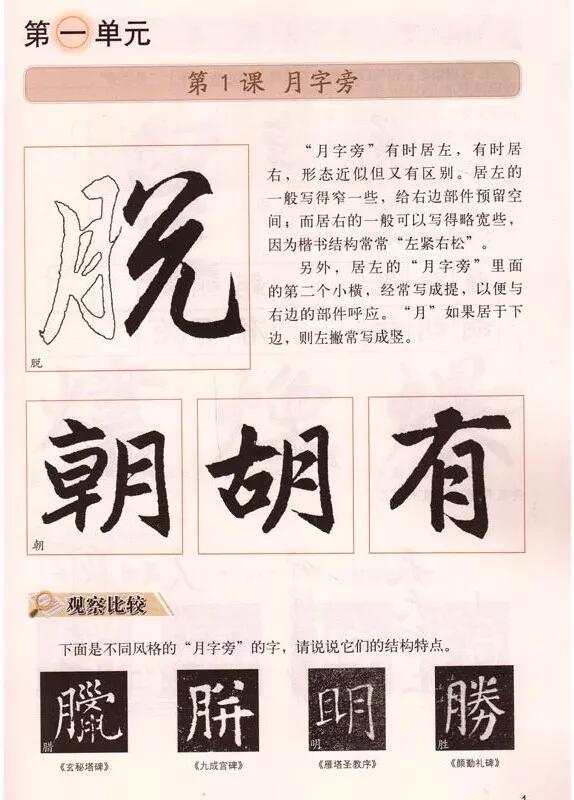 第一单元
第1课 月字旁
脱
“月字旁”有时居左，有时居
右，形态近似但又有区别。居左的
一般写得窄一些，给右边部件预留空
间；而居右的一般可以写得略宽些，
因为楷书结构常常“左紧右松”。
另外，居左的“月字旁”里面
的第二个小横，经常写成提，以便与
右边的部件呼应。“月”如果居于下
边，则左撇常写成竖。
脱
朝 胡 有
朝
观察比较
下面是不同风格的“月字旁”的字，请说说它们的结构特点。
明 勝
明 胜
《玄秘塔碑》 《九成宫碑》 《雁塔圣教序》 《颜勤礼碑》
1